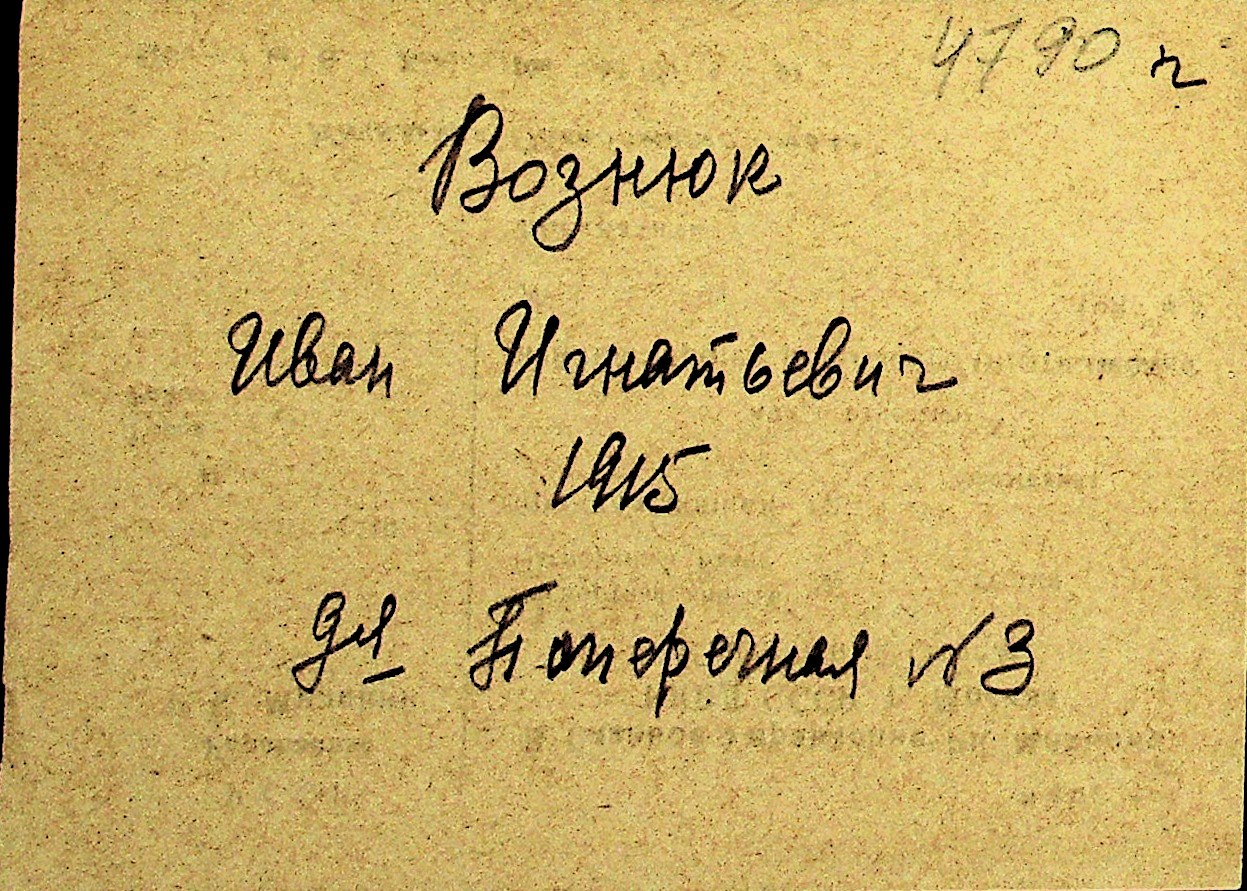 4790 г
Вознюк
Иван Игнатьевич
1915
ул Поперечная N 3